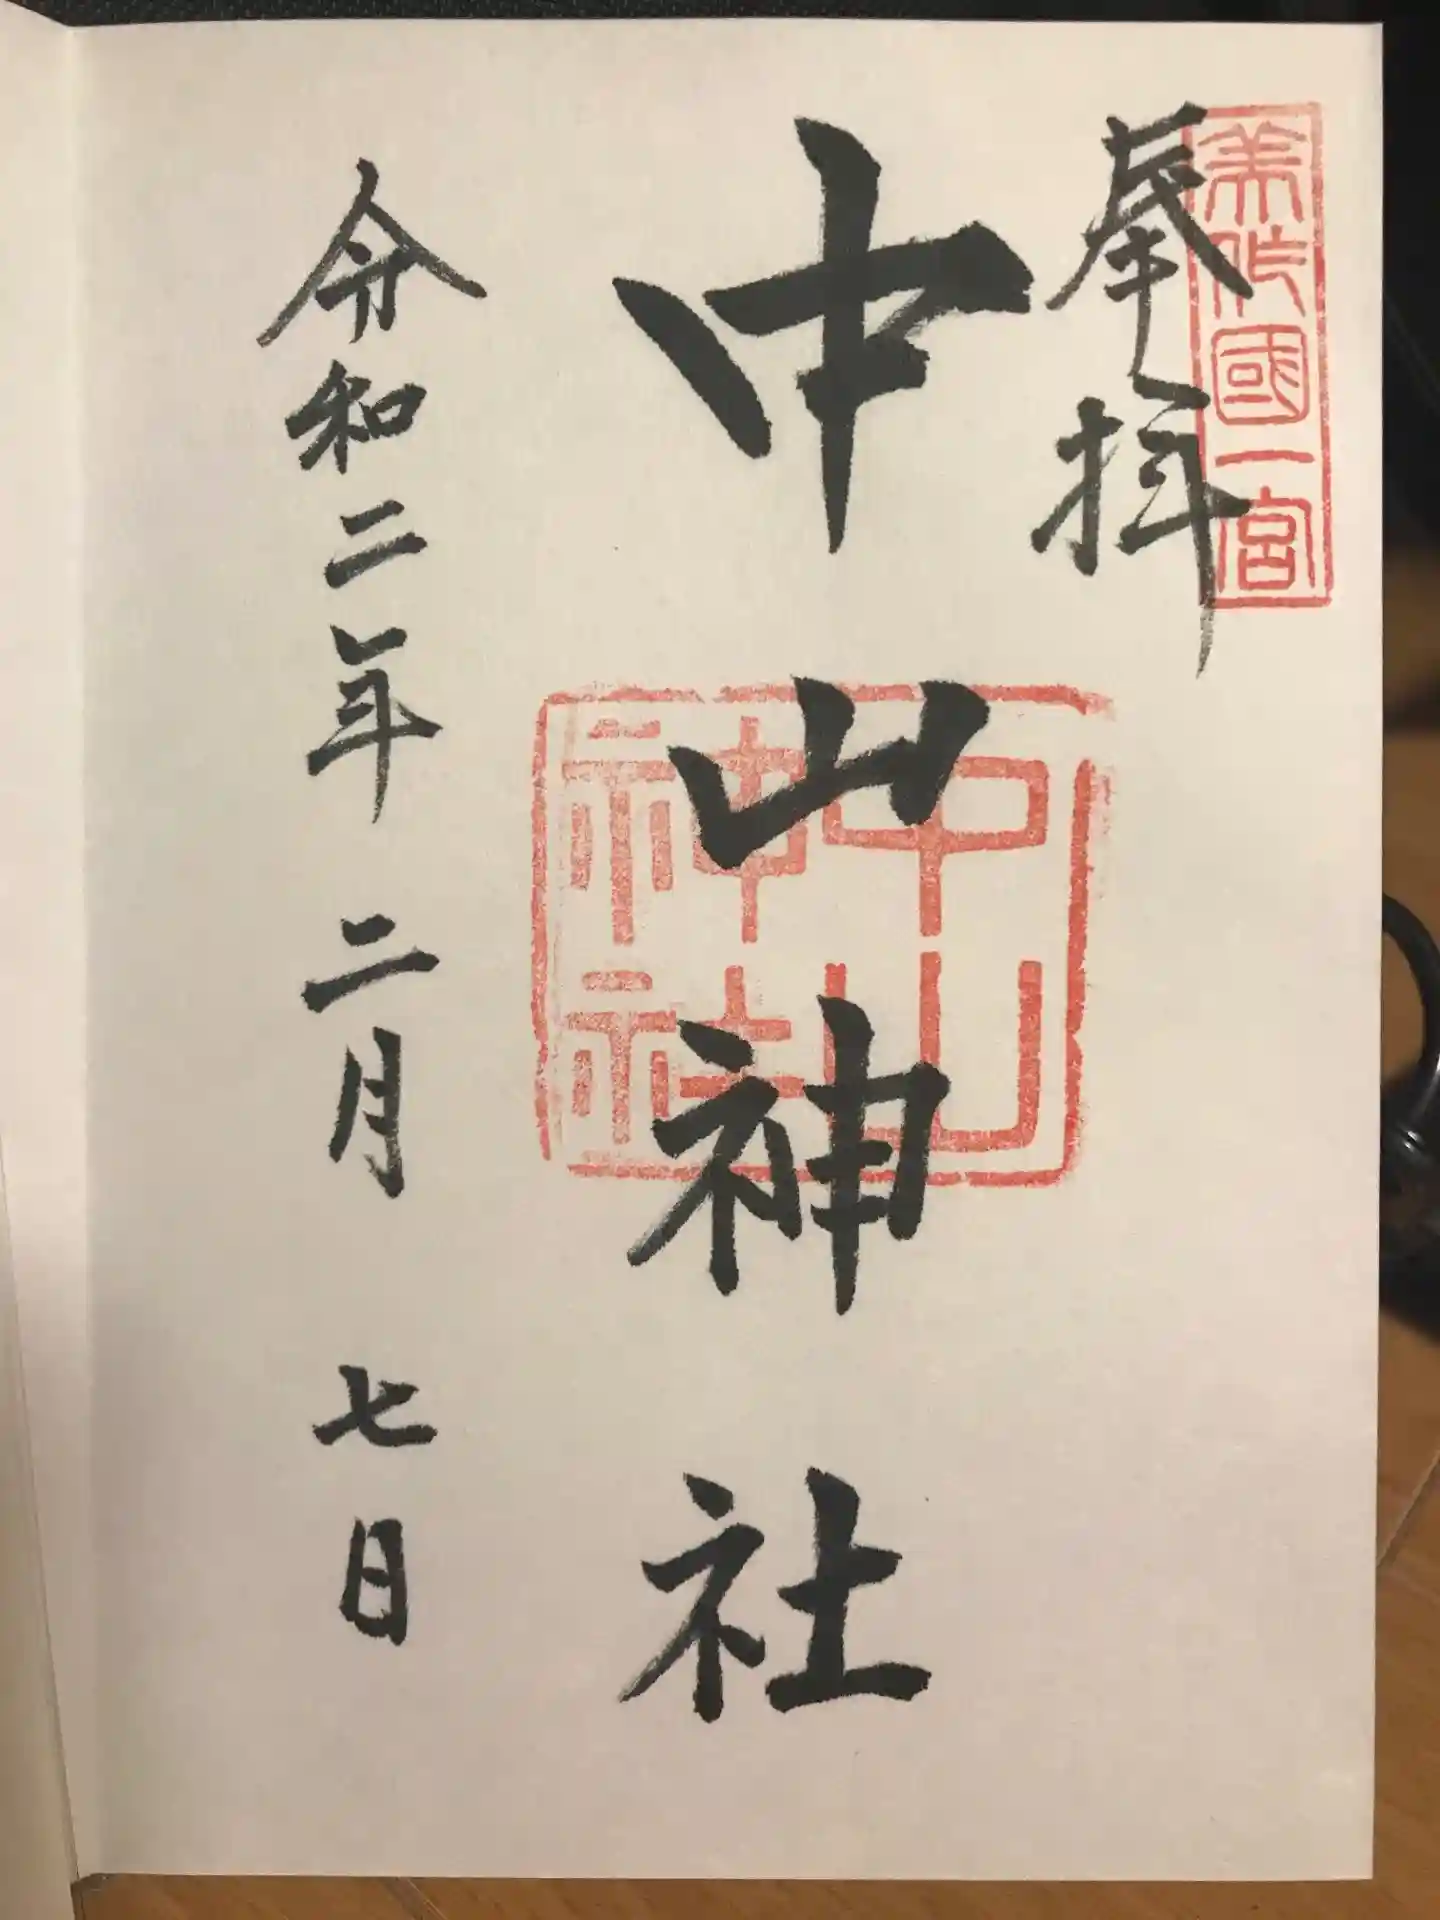 美作國一宮
奉拝
中山神社
中山
神社
令和二年二月七日